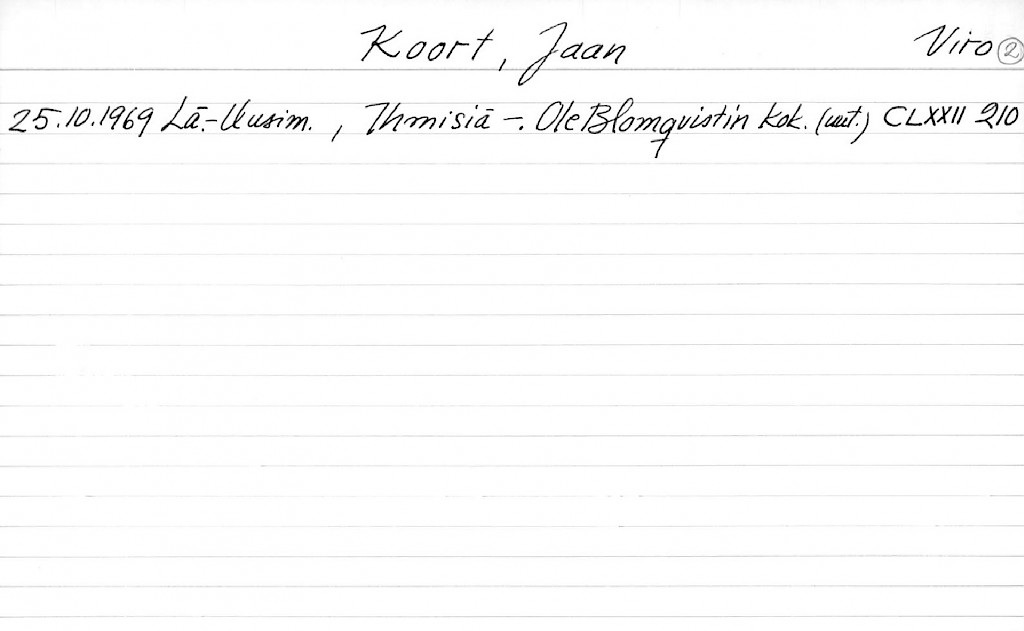 Koort, Jaan Viro 2
25.10.1969 Lä.-Uusim., Ihmisiä –. Ole Blomqvistin kok. (uut.) CLXXII 210